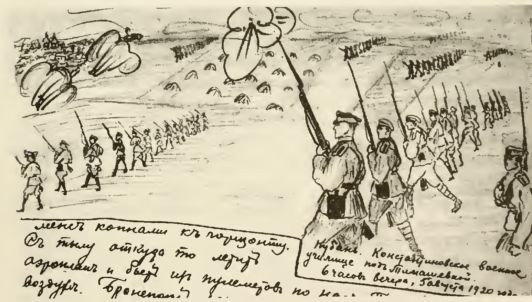 менъ копнами къ горизонту.
Съ тылу откуда то летитъ
аэропланъ и бьетъ изъ пулеметовъ по
воздухъ.
Кубань. Константиновское военное
училище подъ Тимашевкой
6 часовъ вечера, 5 августа 1920 года